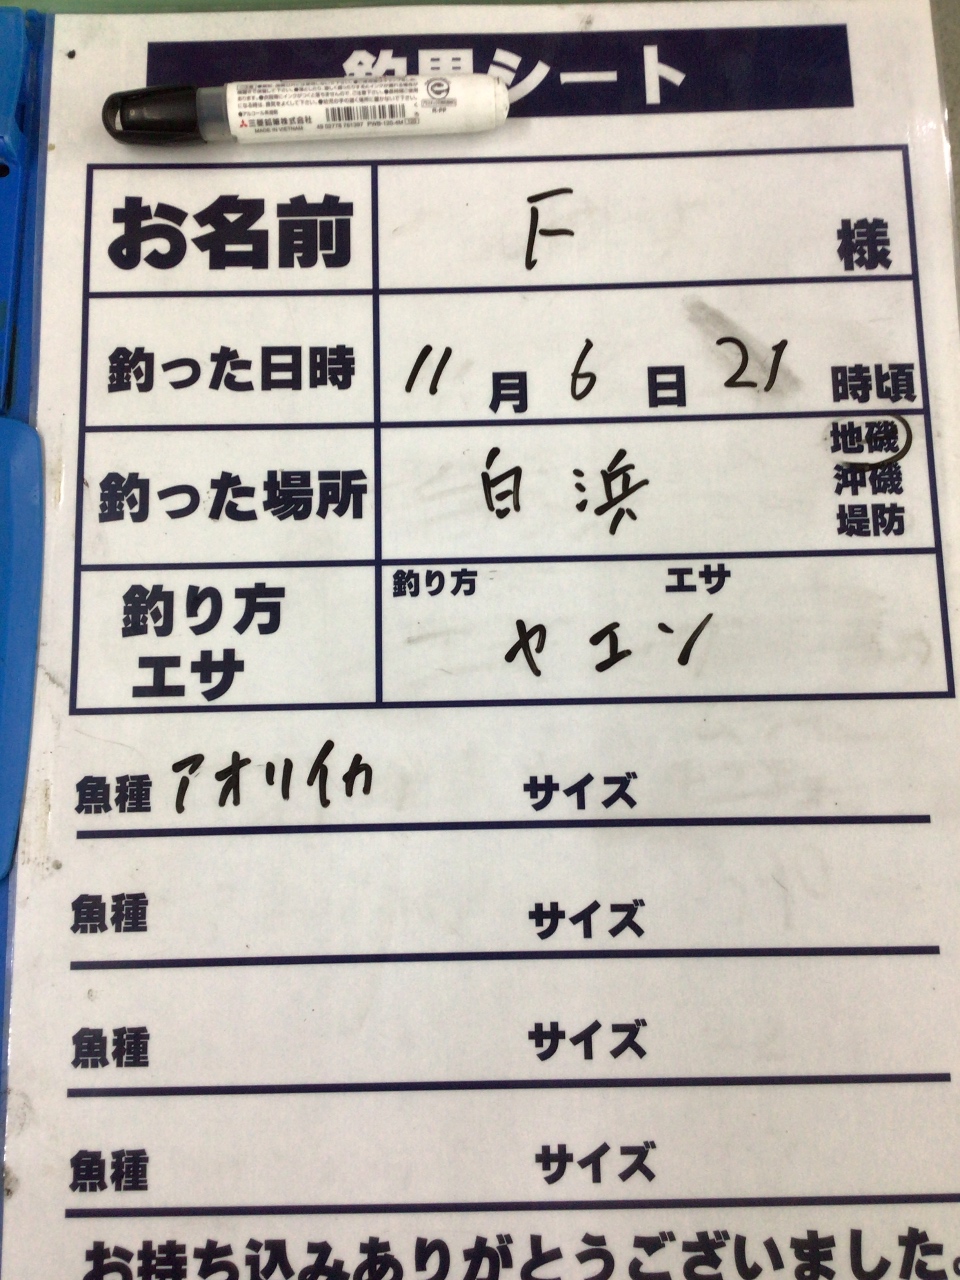 釣果シート
三菱鉛筆株式会社
MADE IN VIETNAM
お名前 F 様
釣った日時 11 月 6 日 21 時頃
釣った場所 白浜 地磯
沖磯
堤防
釣り方 エサ
釣り方 ヤエン
エサ
魚種 アオリイカ サイズ
魚種 サイズ
魚種 サイズ
魚種 サイズ
お持ち込みありがとうございました。